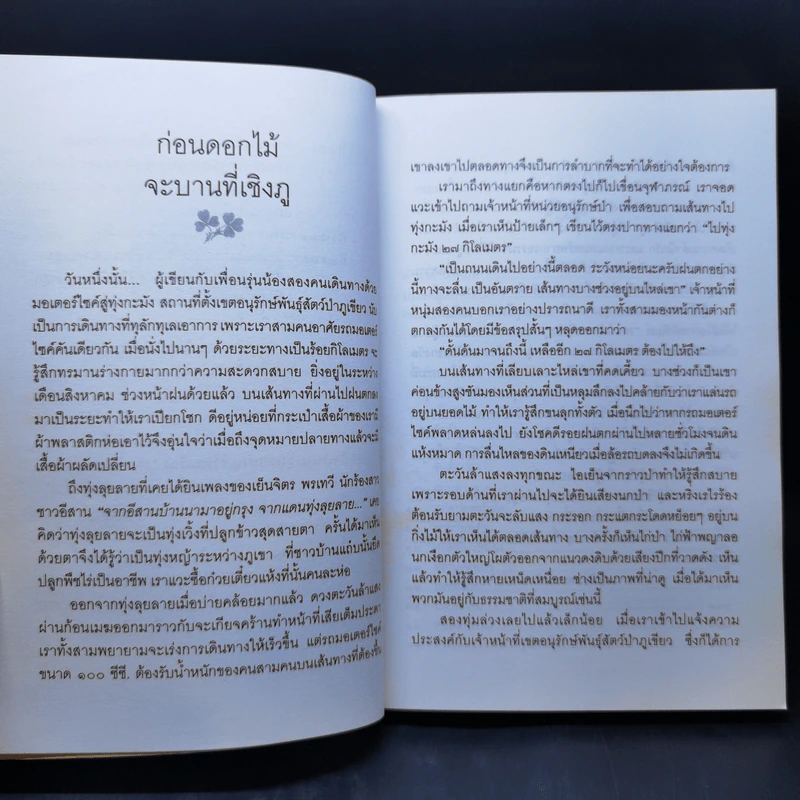 ก่อนดอกไม้
จะบานที่เชิงภู
วันหนึ่งนั้น... ผู้เขียนกับเพื่อนรุ่นน้องสองคนเดินทางด้วย
มอเตอร์ไซค์สู่ทุ่งกะมัง สถานที่ตั้งเขตอนุรักษ์พันธุ์สัตว์ป่าภูเขียว นับ
เป็นการเดินทางที่ทุลักทุเลเอาการ เพราะเราสามคนอาศัยรถมอเตอร์
ไซค์คันเดียวกัน เมื่อนั่งไปนานๆ ด้วยระยะทางเป็นร้อยกิโลเมตร จะ
รู้สึกทรมานร่างกายมากกว่าความสะดวกสบาย ยิ่งอยู่ในระหว่าง
เดือนสิงหาคม ช่วงหน้าฝนด้วยแล้ว บนเส้นทางที่ผ่านไปฝนตกลง
มาเป็นระยะทำให้เราเปียกโชก ดีอยู่หน่อยที่กระเป๋าเสื้อผ้าของเรามี
ผ้าพลาสติกห่อเอาไว้จึงอุ่นใจว่าเมื่อถึงจุดหมายปลายทางแล้วจะมี
เสื้อผ้าผลัดเปลี่ยน
ถึงทุ่งลุยลายที่เคยได้ยินเพลงของเย็นจิตร พรเทวี นักร้องสาว
ชาวอีสาน “จากอีสานบ้านนามาอยู่กรุง จากแดนทุ่งลุยลาย...” เคย
คิดว่าทุ่งลุยลายจะเป็นทุ่งเวิ้งที่ปลูกข้าวสุดสายตา ครั้นได้มาเห็น
ด้วยตาจึงได้รู้ว่าเป็นทุ่งหญ้าระหว่างภูเขา ที่ชาวบ้านแถบนั้นยึด
ปลูกพืชไร่เป็นอาชีพ เราแวะซื้อก๋วยเตี๋ยวแห้งที่นั้นคนละห่อ
ออกจากทุ่งลุยลายเมื่อบ่ายคล้อยมากแล้ว ดวงตะวันล้าแสง
ผ่านก้อนเมฆออกมาราวกับจะเกียจคร้านทำหน้าที่เสียเต็มประดา
เราทั้งสามพยายามจะเร่งการเดินทางให้เร็วขึ้น แต่รถมอเตอร์ไซค์
ขนาด ๑๐๐ ซีซี. ต้องรับน้ำหนักของคนสามคนบนเส้นทางที่ต้องขึ้น
เขาลงเขาไปตลอดทางจึงเป็นการลำบากที่จะทำได้อย่างใจต้องการ
เรามาถึงทางแยกคือหากตรงไปก็ไปเขื่อนจุฬาภรณ์ เราจอด
แวะเข้าไปถามเจ้าหน้าที่หน่วยอนุรักษ์ป่า เพื่อสอบถามเส้นทางไป
ทุ่งกะมัง เมื่อเราเห็นป้ายเล็กๆ เขียนไว้ตรงปากทางแยกว่า “ไปทุ่ง
กะมัง ๒๗ กิโลเมตร”
“เป็นถนนเดินไปอย่างนี้ตลอด ระวังหน่อยนะครับฝนตกอย่าง
นี้ทางจะลื่น เป็นอันตราย เส้นทางบางช่วงอยู่บนไหล่เขา” เจ้าหน้าที่
หนุ่มสองคนบอกเราอย่างปรารถนาดี เราทั้งสามมองหน้ากันต่างก็
ตกลงกันได้โดยมีข้อสรุปสั้นๆ หลุดออกมาว่า
“ดั้นด้นมาจนถึงนี่ เหลืออีก ๒๗ กิโลเมตร ต้องไปให้ถึง”
บนเส้นทางที่เลียบเลาะไหล่เขาที่คดเคี้ยว บางช่วงก็เป็นเขา
ค่อนข้างสูงชันมองเห็นส่วนที่เป็นหลุมลึกลงไปคล้ายกับว่าเราแล่นรถ
อยู่บนยอดไม้ ทำให้เรารู้สึกขนลุกทั้งตัว เมื่อนึกไปว่าหากรถมอเตอร์
ไซค์พลาดหล่นลงไป ยังโชคดีรอยฝนตกผ่านไปหลายชั่วโมงจนดิน
แห้งหมาด การลื่นไหลของดินเหนียวเมื่อล้อรถบดลงจึงไม่เกิดขึ้น
ตะวันล้าแสงลงทุกขณะ ไอเย็นจากราวป่าทำให้รู้สึกสบาย
เพราะรอบด้านที่เราผ่านไปจะได้ยินเสียงนกป่า และหริ่งเรไรร้อง
ต้อนรับยามตะวันจะลับแสง กระรอก กระแตกระโดดหย็อยๆ อยู่บน
กิ่งไม้ให้เราเห็นได้ตลอดเส้นทาง บางครั้งก็เห็นไก่ป่า ไก่ฟ้าพญาลอ
นกเงือกตัวใหญ่โผตัวออกจากแนวดงดิบด้วยเสียงปีกที่วาดดัง เห็น
แล้วทำให้รู้สึกหายเหน็ดเหนื่อย ช่างเป็นภาพที่น่าดู เมื่อได้มาเห็น
พวกมันอยู่กับธรรมชาติที่สมบูรณ์เช่นนี้
สองทุ่มล่วงเลยไปแล้วเล็กน้อย เมื่อเราเข้าไปแจ้งความ
ประสงค์กับเจ้าหน้าที่เขตอนุรักษ์พันธุ์สัตว์ป่าภูเขียว ซึ่งก็ได้การ